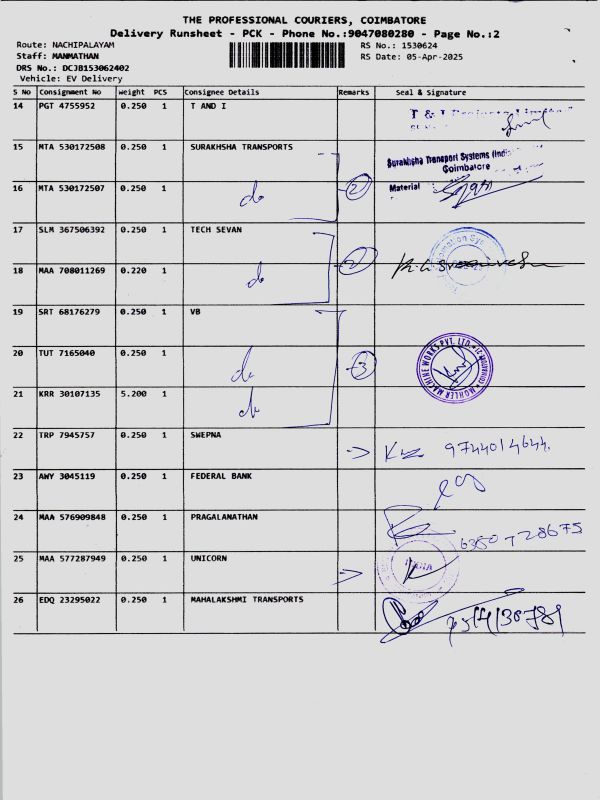 THE PROFESSIONAL COURIERS, COIMBATORE
Delivery Runsheet - PCK - Phone No.:9047080280 - Page No.:2
Route: NACHIPALAYAM RS No.: 1530624
Staff: MANMATHAN RS Date: 05-Apr-2025
DRS No.: DCJB153062402
Vehicle: EV Delivery
S No Consignment No weight PCS Consignee Details Remarks Seal & Signature
14 PGT 4755952 0.250 1 T AND I
15 MTA 530172508 0.250 1 SURAKHSHA TRANSPORTS Surakhsha Transport Systems (Indi
Coimbatore
16 MTA 530172507 0.250 1 do 2 Material
17 SLM 367506392 0.250 1 TECH SEVAN
18 MAA 708011269 0.220 1 do 2
19 SRT 68176279 0.250 1 VB
20 TUT 7165040 0.250 1 do 3 MOHLER MACHINE WORKS PVT. LTD.
21 KRR 30107135 5.200 1 do
22 TRP 7945757 0.250 1 SWEPNA 9744014644
23 AWY 3045119 0.250 1 FEDERAL BANK
24 MAA 576909848 0.250 1 PRAGALANATHAN 6380728675
25 MAA 577287949 0.250 1 UNICORN
26 EDQ 23295022 0.250 1 MAHALAKSHMI TRANSPORTS